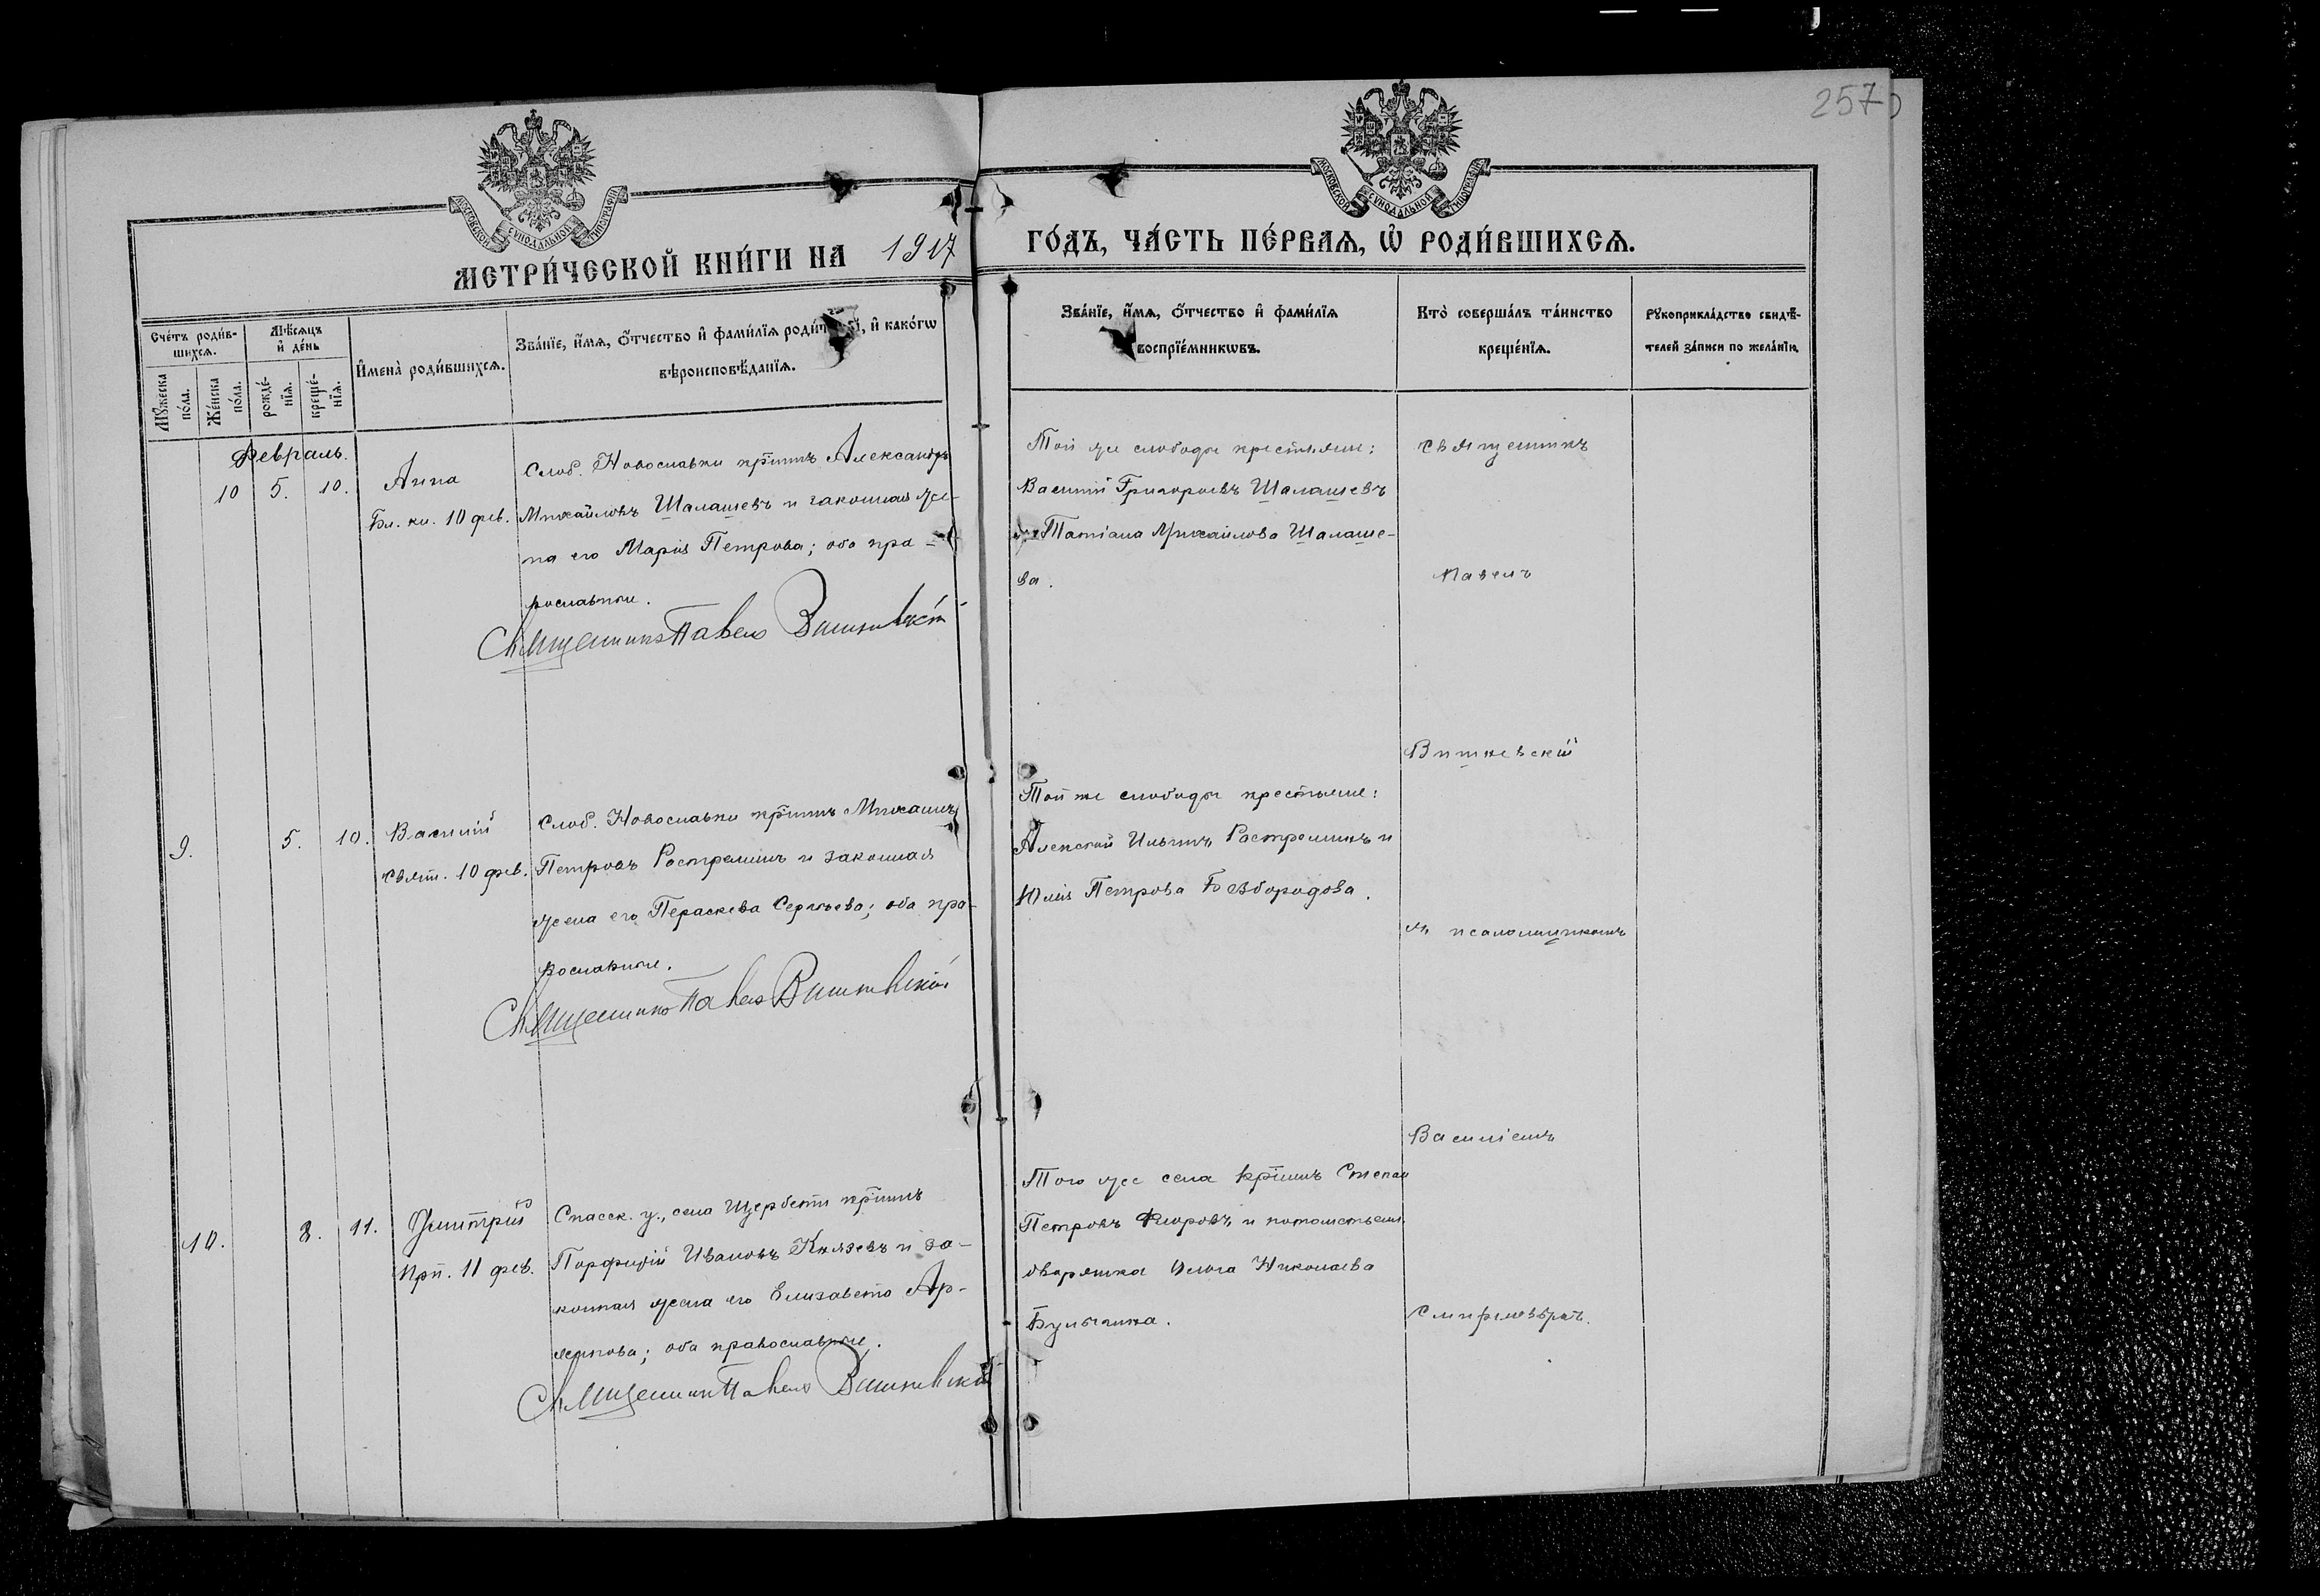 257
МОСКОВСКОЙ СУНОДАЛЬНОЙ ТИПОГРАФІИ
МОСКОВСКОЙ СУНОДАЛЬНОЙ ТИПОГРАФІИ
МЕТРИ́ЧЕСКОЙ КНИ́ГИ НА 1917
ГО́ДЪ, ЧА́СТЬ ПЕ́РВАѦ, Ѡ҆ РОДИ́ВШИХСѦ.
Сче́тъ роди́в-
шихсѧ.
Мѣ́сѧцъ
и҆ де́нь
Мꙋ́жеска
по́ла.
Же́нска
по́ла.
рожде́-
нїѧ.
креще́-
нїѧ.
И҆мена̀ роди́вшихсѧ.
Зва́нїе, и҆́мѧ, ѻ҆́тчество и҆ фами́лїѧ роди́т , и҆ како́гѡ
вѣроисповѣ́данїѧ.
Зва́нїе, и҆́мѧ, ѻ҆́тчество и҆ фами́лїѧ
воспрїе́мникѡвъ.
Кто̀ соверша́лъ та́инство
креще́нїѧ.
Рꙋкоприкла́дство свидѣ́-
телей за́писи по жела́нїю.
Февраль.
10 5. 10.
Анна
Бл. кн. 10 фев.
Слоб. Новославки кр̃нинъ Александръ
Михайловъ Шалашевъ и законная же-
на его Марія Петрова; оба пра-
вославные.
Священникъ Павелъ Вишневскій
Той же слободы крестьяне:
Василій Григорьевъ Шалашевъ
и Татіана Михайлова Шалаше-
ва.
Священникъ
Павелъ
Вишневскій
9. 5. 10.
Василій
Свят. 10 фев.
Слоб. Новославки кр̃нинъ Михаилъ
Петровъ Растрелинъ и законная
жена его Параскева Сергѣева; оба пра-
вославные.
Священникъ Павелъ Вишневскій
Той же слободы крестьяне:
Алексѣй Ильинъ Растрелинъ и
Юлія Петрова Безбородова.
съ псаломщикомъ
Василіемъ
10. 8. 11.
Димитрій
Прп. 11 фев.
Спасск. у., села Щербети кр̃нинъ
Порфирій Ивановъ Князевъ и за-
конная жена его Елизавета Ар-
темова; оба православные.
Священникъ Павелъ Вишневскій
Того же села кр̃нинъ Степан
Петровъ Флоровъ и потомствен.
дворянка Ольга Николаева
Булыгина.